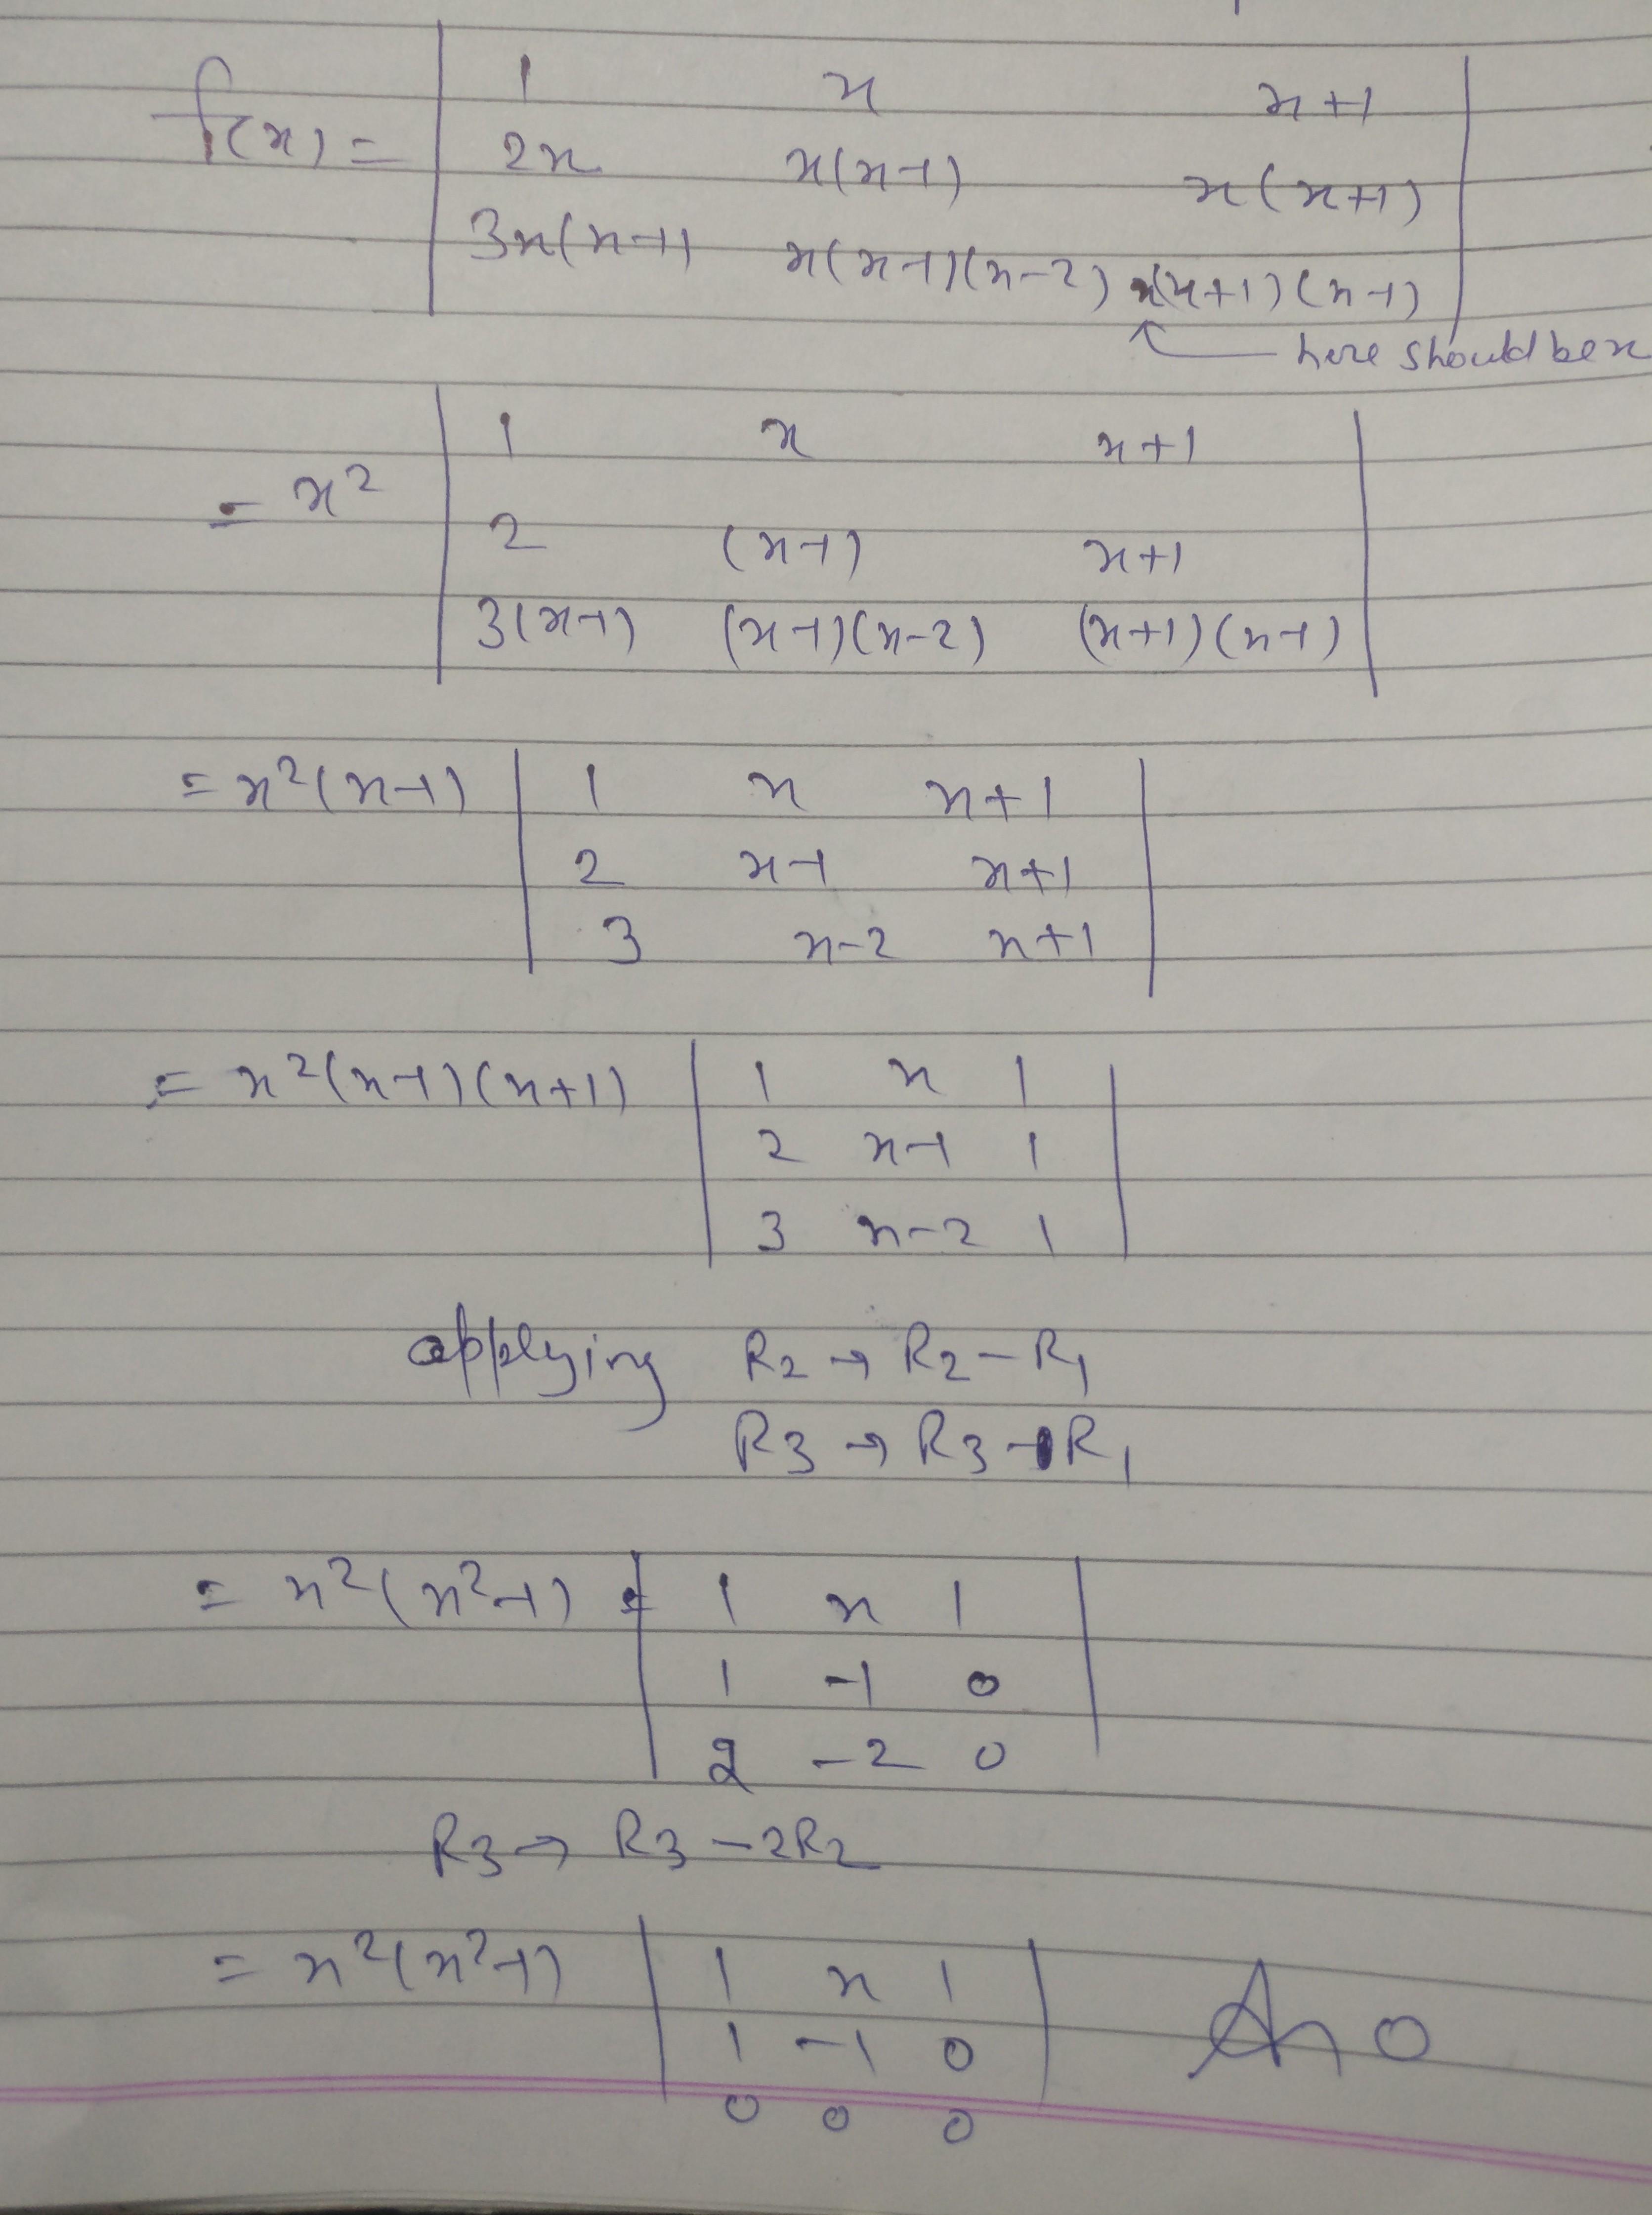 f(x) = | 1 x x+1 |
| 2x x(x-1) x(x+1) |
| 3x(x-1) x(x-1)(x-2) x(x+1)(x-1) |
here should be x
= x² | 1 x x+1 |
| 2 (x-1) x+1 |
| 3(x-1) (x-1)(x-2) (x+1)(x-1) |
= x²(x-1) | 1 x x+1 |
| 2 x-1 x+1 |
| 3 x-2 x+1 |
= x²(x-1)(x+1) | 1 x 1 |
| 2 x-1 1 |
| 3 x-2 1 |
applying R2 → R2 - R1
R3 → R3 - R1
= x²(x²-1) | 1 x 1 |
| 1 -1 0 |
| 2 -2 0 |
R3 → R3 - 2R2
= x²(x²-1) | 1 x 1 |
| 1 -1 0 | An 0
0 0 0